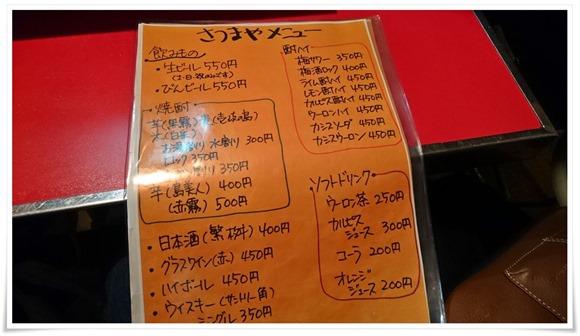 さつまやメニュー
飲みもの
・生ビール 550円
(土・日・祝のみです)
・びんビール 550円
・焼酎
芋(黒霧)麦(壱岐の島)
米(白岳)
お湯割り 水割り 300円
ロック 350円
割り 350円
芋(島美人) 400円
(赤霧) 500円
・日本酒(繁桝) 400円
・グラスワイン(赤) 450円
・ハイボール 450円
・ウイスキー(サントリー角)
シングル 350円
酎ハイ
梅サワー 350円
梅酒ロック 400円
ライム酎ハイ 450円
レモン酎ハイ 450円
カルピス酎ハイ 450円
ウーロンハイ 450円
カシスソーダ 450円
カシスウーロン 450円
ソフトドリンク
ウーロン茶 250円
カルピス
ジュース 300円
コーラ 200円
オレンジ
ジュース 200円